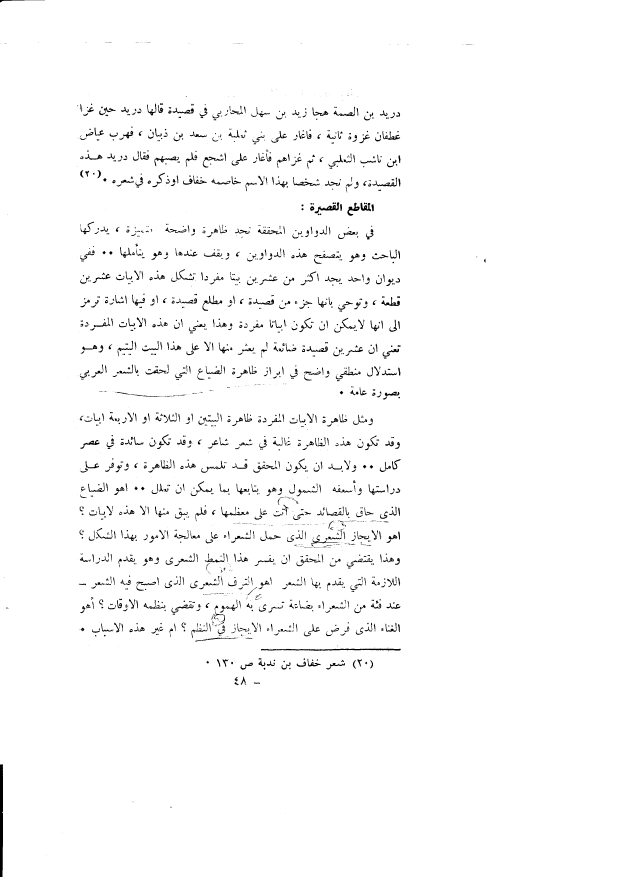 دريد بن الصمة هجا زيد بن سهل المحاربي في قصيدة قالها دريد حين غزا
غطفان غزوة ثانية ، فاغار على بني ثعلبة بن سعد بن ذبيان ، فهرب عياض
ابن ناشب الثعلبي ، ثم غزاهم فأغار على اشجع فلم يصبهم فقال دريد هـذه
القصيدة، ولم نجد شخصا بهذا الاسم خاصمه خفاف اوذكره في شعره ٠(٢٠)
المقاطع القصيرة :
في بعض الدواوين المحققة نجد ظاهرة واضحة متميزة ، يدركها
الباحث وهو يتصفح هذه الدواوين ، ويقف عندها وهو يتأملها ٠٠ ففي
ديوان واحد يجد اكثر من عشرين بيتا مفردا تشكل هذه الابيات عشرين
قطعة ، وتوحي بانها جزء من قصيدة ، او مطلع قصيدة ، او فيها اشارة ترمز
الى انها لايمكن ان تكون ابياتا مفردة وهذا يعني ان هذه الابيات المفـردة
تعني ان عشرين قصيدة ضائعة لم يعثر منها الا على هذا البيت اليتيم ، وهـو
استدلال منطقي واضح في ابراز ظاهرة الضياع التي لحقت بالشعر العربي
بصورة عامة ٠
ومثل ظاهرة الابيات المفردة ظاهرة البيتين او الثلاثة او الاربعة ابيات،
وقد تكون هذه الظاهرة غالبة في شعر شاعر ، وقد تكون سائدة في عصر
كامل ٠٠ ولابـد ان يكون المحقق قـد تلمس هذه الظاهرة ، وتوفر علـى
دراستها وأسعفه الشمول وهو يتابعها بما يمكن ان تعلل ٠٠ اهو الضياع
الذي حاق بالقصائد حتى أتت على معظمها ، فلم يبق منها الا هذه لابيات ؟
اهو الايجاز الشعري الذى حمل الشعراء على معالجة الامور بهذا الشكل ؟
وهذا يقتضي من المحقق ان يفسر هذا النمط الشعرى وهو يقدم الدراسة
اللازمة التي يقدم بها الشعر اهو الترف الشعرى الذى اصبح فيه الشعر ــ
عند فئة من الشعراء بضاعة تسرى به الهموم ، وتقضي بنظمه الاوقات ؟ أهو
الغناء الذى فرض على الشعراء الايجاز في النظم ؟ ام غير هذه الاسباب ٠
(٢٠) شعر خفاف بن ندبة ص ١٣٠ ٠
ــ ٤٨